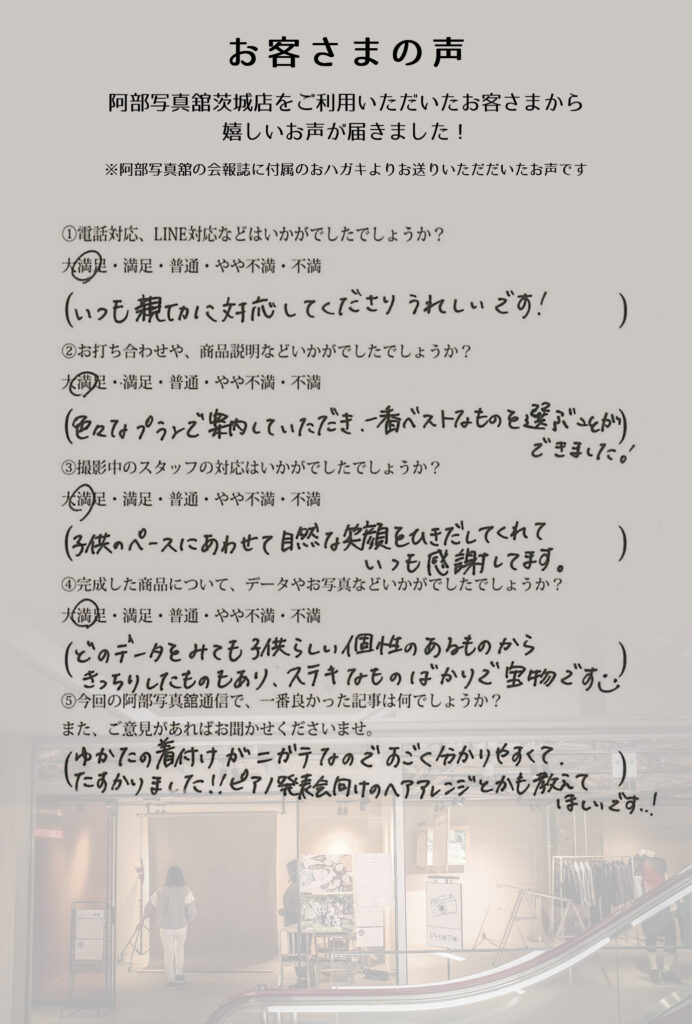 お客さまの声
阿部写真舘茨城店をご利用いただいたお客さまから
嬉しいお声が届きました！
※阿部写真舘の会報誌に付属のおハガキよりお送りいただだいたお声です
①電話対応、LINE対応などはいかがでしたでしょうか？
大満足・満足・普通・やや不満・不満
(いつも親切に対応してくださりうれしいです!)
②お打ち合わせや、商品説明などいかがでしたでしょうか？
大満足・満足・普通・やや不満・不満
(色々なプランで案内していただき、一番ベストなものを選ぶことが)
できました!
③撮影中のスタッフの対応はいかがでしたでしょうか？
大満足・満足・普通・やや不満・不満
(子供のペースにあわせて自然な笑顔をひきだしてくれて
いつも感謝してます。)
④完成した商品について、データやお写真などいかがでしたでしょうか？
大満足・満足・普通・やや不満・不満
(どのデータをみても子供らしい個性のあるものから
きっちりしたものもあり、ステキなものばかりで宝物です)
⑤今回の阿部写真舘通信で、一番良かった記事は何でしょうか？
また、ご意見があればお聞かせくださいませ。
(ゆかたの着付けがニガテなのですごく分かりやすくて、
たすかりました!!ピアノ発表会向けのヘアアレンジとかも教えて)
ほしいです..!
PHOTO